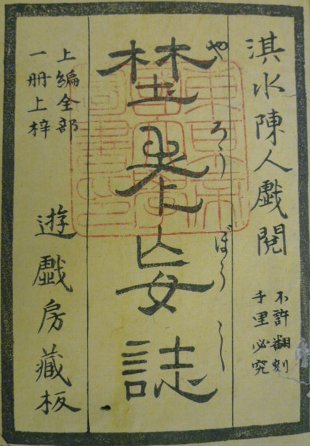 淇水陳人戲閲
不許翻刻
千里必究
埜老妄誌
やろうぼうし
上編全部
一冊上梓
遊戲房藏板